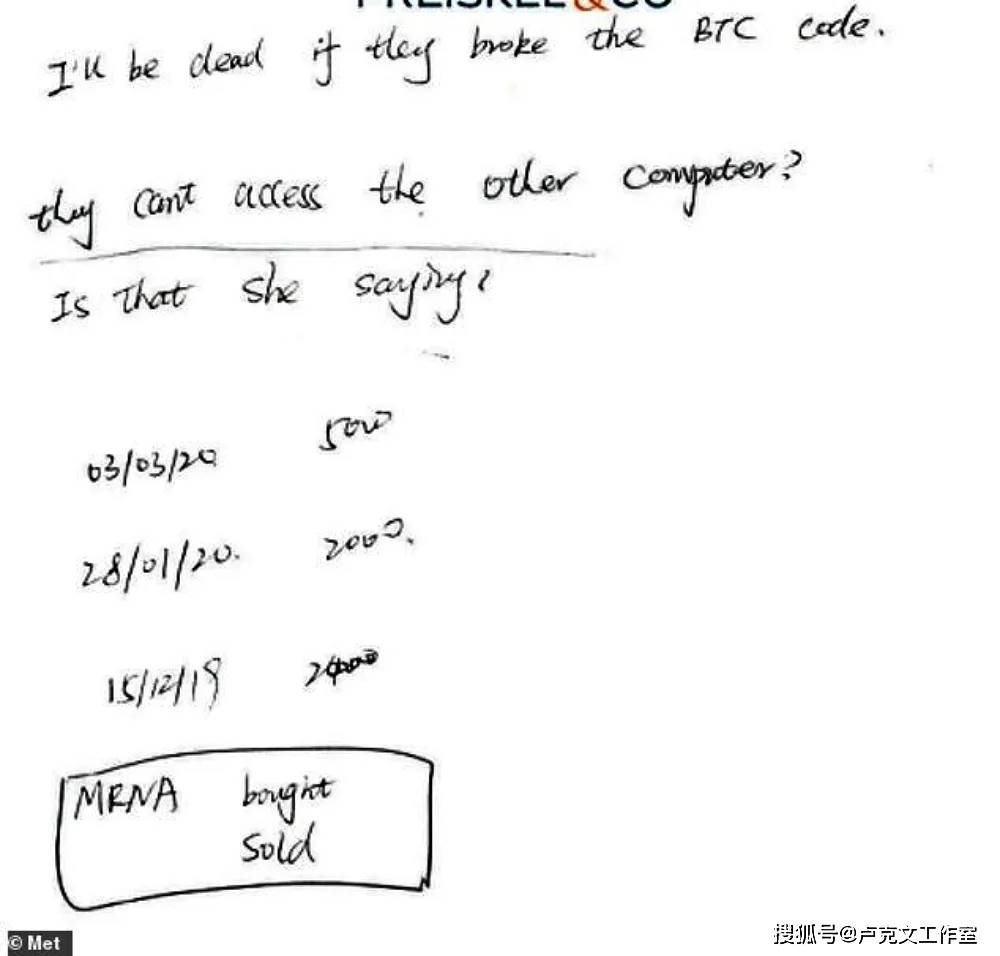 PREISKEL&CO
I'll be dead if they broke the BTC code.
they cant access the other computer?
Is that she saying?
03/03/20 5000
28/01/20. 2000.
15/12/19
MRNA bought
sold
© Met
搜狐号@卢克文工作室